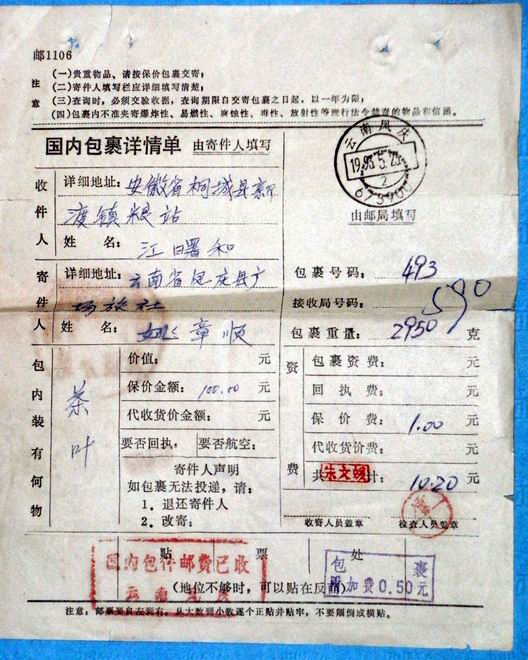 邮1106
注意
(一)贵重物品、请按保价包裹交寄；
(二)寄件人填写栏应详细填写清楚；
(三)查询时，必须交验收据，查询期限自交寄包裹之日起，以一年为限；
(四)包裹内不准夹寄爆炸性、易燃性、腐蚀性、毒性、放射性等现行法令禁寄的物品和信函。
国内包裹详情单 由寄件人填写
云南凤庆
2
675900
由邮局填写
收件人
详细地址：安徽省桐城县新
渡镇粮站
姓名：江曙和
寄件人
详细地址：云南省凤庆县广
场旅社
姓名：章顺
包裹号码：493
接收局号码：590
包裹重量：2950 克
包内装有何物
茶叶
价值： 元
保价金额：100.00 元
代收货价金额： 元
要否回执： 要否航空：
寄件人声明
如包裹无法投递，请：
1．退还寄件人
2．改寄：
资费
包裹资费： 元
回执费： 元
保价费：1.00 元
代收货价费： 元
共计：10.20 元
收寄人员盖章 检查人员盖章
贴票处
国内包件邮费已收
云南
(地位不够时，可以贴在反面)
包裹
附加费0.50元
注意：邮票要自左到右，从大数到小数逐个正贴并贴牢，不要颠倒或横贴。